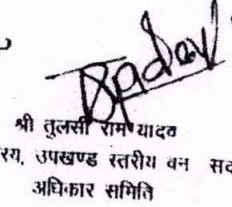 Yadav
श्री तुलसी राम यादव
उपखण्ड स्तरीय वन
अधिकार समिति